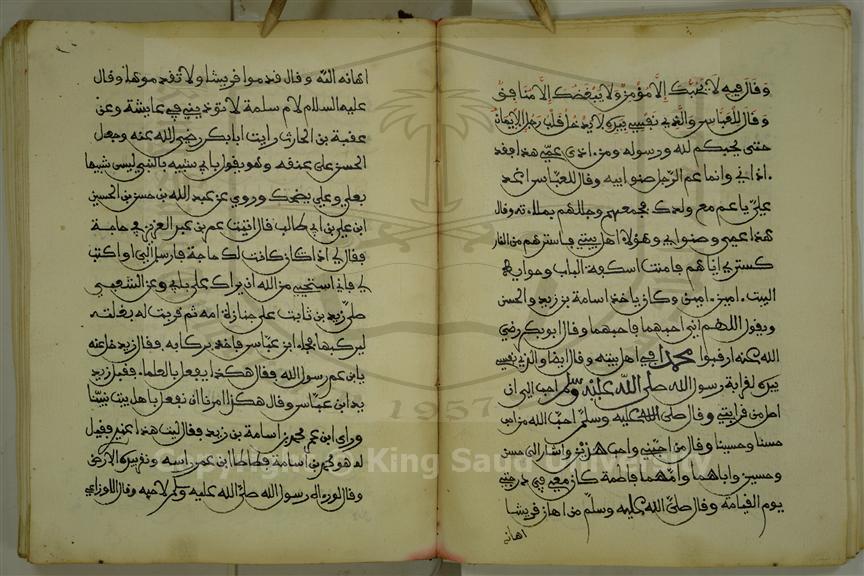 وقال فيه لا يحبك إلا مؤمن ولا يبغضك إلا منافق
وقال للعباس والذي نفسي بيده لا يدخل قلب رجل الإيمان
حتى يحبكم لله ورسوله ومن اذى عمي هذا فقد
اذاني وانما عم الرجل صنو ابيه وقال للعباس اغد
علي يا عم مع ولدك فجمعهم وجللهم بملاءته وقال
هذا عمي وصنو ابي وهؤلا اهل بيتي فاسترهم من النار
كستري اياهم فامنت اسكفة الباب وحوايط
البيت امين امين وكان ياخذ اسامة بن زيد والحسن
ويقول اللهم اني احبهما فاحبهما وقال ابو بكر رضي
الله عنه ارقبوا محمدا في اهل بيته وقال ايضا والذي نفسي
بيده لقرابة رسول الله صلى الله عليه وسلم احب الي ان
اصل من قرابتي وقال صلى الله عليه وسلم احب الله من احب
حسنا وحسينا وقال من احبني واحب هذين واشار الى حسن
وحسين واباهما وامهما فاطمة كان معي في درجتي
يوم القيامة وقال صلى الله عليه وسلم من اهان قريشا
اهانه
اهانه الله وقال قدموا قريشا ولا تقدموها وقال
عليه السلام لام سلمة لا توذيني في عايشة وعن
عقبة بن الحارث رايت ابا بكر رضي الله عنه وجعل
الحسن على عنقه وهو يقول بابي شبيه بالنبي ليس شبيها
بعلي وعلي يضحك وروي عن عبد الله بن حسن بن الحسين
ابن علي بن ابي طالب قال اتيت عمر بن عبد العزيز في حاجة
فقال لي اذا كان كانت لك حاجة فارسل الي او اكتب
لي فاني استحيي من الله ان يراك على بابي وعن الشعبي
صلى زيد بن ثابت على جنازة امه ثم قربت له بغلته
ليركبها فجاء ابن عباس فاخذ بركابه فقال زيد خل عنه
يا بن عم رسول الله فقال هكذا يفعل بالعلماء فقبل زيد
يد ابن عباس وقال هكذا امرنا ان نفعل باهل بيت نبينا
وراى ابن عمر محمد بن اسامة بن زيد فقال ليت هذا عندي فقيل
له هو محمد بن اسامة فطاطا ابن عمر راسه ونقر بيده الارض
وقال لو راه رسول الله صلى الله عليه وسلم لاحبه وقال الاوزاعي
1957
Copyright © King Saud University